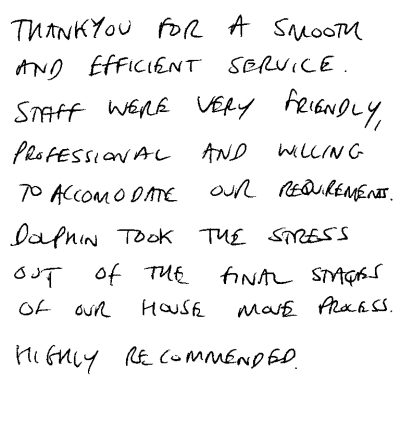 THANKYOU FOR A SMOOTH
AND EFFICIENT SERVICE.
STAFF WERE VERY FRIENDLY,
PROFESSIONAL AND WILLING
TO ACCOMODATE OUR REQUIREMENTS.
DOLPHIN TOOK THE STRESS
OUT OF THE FINAL STAGES
OF OUR HOUSE MOVE PROCESS.
HIGHLY RECOMMENDED.